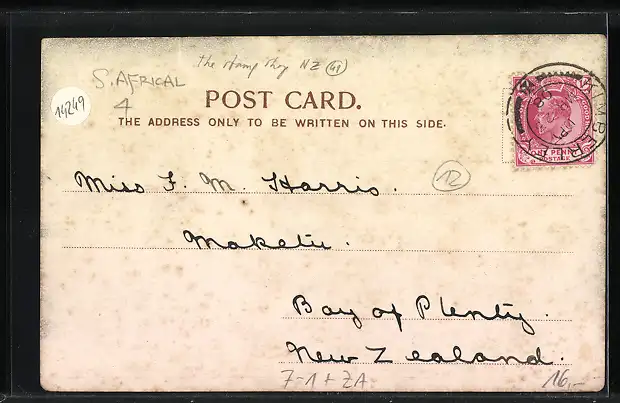 the stamp shop NZ 49
S. AFRICA
14249
4
POST CARD.
THE ADDRESS ONLY TO BE WRITTEN ON THIS SIDE.
KIMBERLEY
PENNY
POSTAGE
Miss F. M. Harris.
12
Maketu.
Bay of Plenty.
New Zealand.
7-1 + ZA
16,-